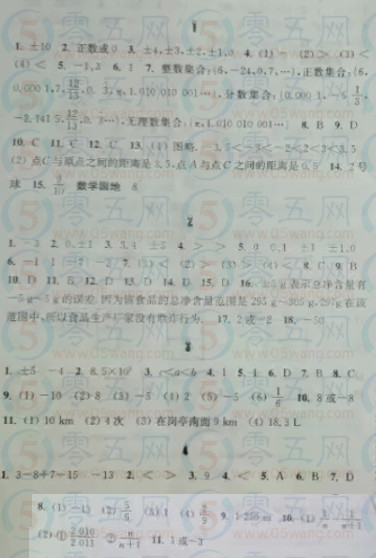 1
1. ±10 2. 正数或0 3. ±4,±3,±2,±1,0 4. (1) = (2) > (3) <
(4) < 5. -1,3 6. 1 7. 整数集合:{6,-24,0,7,…},正数集合:{6,
0.000 1,7, π,1.010 010 001…},分数集合:{0.000 1,
无理数集合:{π,1.010 010 001…} 8. B 9. D
10. C 11. C 12. C 13. (1) 图略. -3.5<-3<-2<2<3<3.5
(2) 点C与原点之间的距离是3.5,点A与点C之间的距离是0.5 14. 2号
球 15. 9/10 数学园地 8
2
1. -3 2. 0,±1 3. 3,4 ±5 4. > > 5. 0 0,1 ±1 ±1,0
7. (1) < (2) > (3) > (4) < 8. C 9. B
10. D 11. B 12. D 13. D 14. D 15. D 16. ±5 g表示总净含量有
-5 g~5 g的误差,因为该食品的总净含量范围是295 g~305 g,297g在该
范围中,所以食品生产厂家没有欺诈行为. 17. 2或-2 18. -50
3
1. ±5 -4 2. 8.5×10⁷ 3. c<a<b 4. 1 5. 1 6. D 7. B 8. C
9. (1) -10 (2) 8 (3) -5 (4) 2 (5) -5 (6) 1/6 10. 8或-8
11. (1) 10 km (2) 4次 (3) 在岗亭南面9 km (4) 18.3 L
4
1. 3-8+7-15 -13 2. < > 3. 9 4. < 5. A 6. B 7. D
8. (1) -13 (2) 5/6 (3) 1 (4) 9. 10. (1) 1/n - 1/(n+1)
(2) ① 2 010/2 011 ② n/(n+1) 11. 1或-3